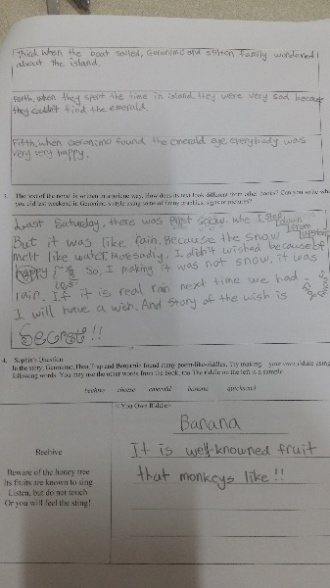 Third when the boat sailed, Geronimo and Stilton family wondered
about the island.
Forth, when they spent the time in island, they were very sad because
they couldn't find the emerald.
Fifth, when Geronimo found the emerald eye everybody was
very very happy.
3. The text of the novel is written in a unique way. How does its text look different from other books? Can you write what
you did last weekend in Geronimo's style using some
Last Saturday, there was first snow. We
But it was like rain. Because the snow
melt like water. I didn't wished because of
happy So, I making it was not snow, it was
rain. If it is real rain next time we had
I will have a wish. And story of the wish is
Secret!!
4. Sophie's Question
In the story, Geronimo, Thea, Trap and Benjamin found many poem-like riddles. Try making your own riddle using
following words. You may use the other words from the book, too. The riddle on the left is a sample.
beehive cheese emerald banana quicksand
< You Own Riddle>
Banana
It is well-knowned fruit
that monkeys like!!
Beehive
Beware of the honey tree
Its fruits are known to sing
Listen, but do not touch
Or you will feel the sting!